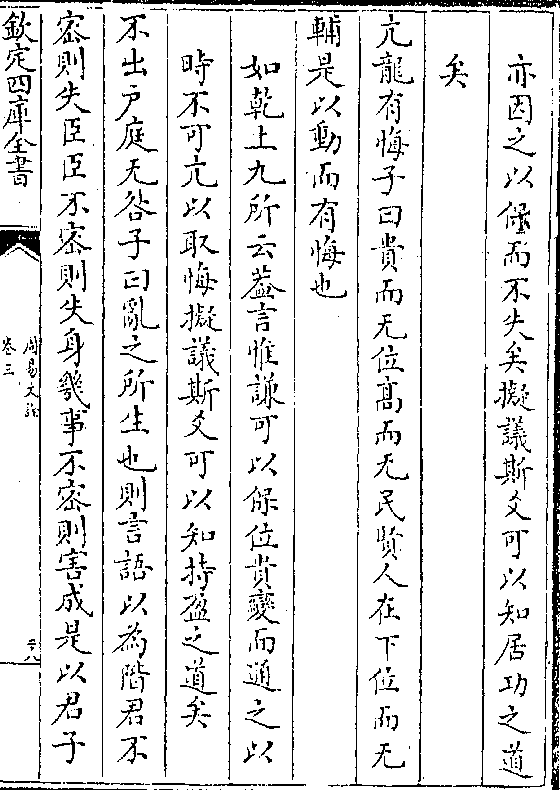 亦因之以保而不失矣擬議斯爻可以知居功之道
矣
亢龍有悔子曰貴而无位髙而无民賢人在下位而无
輔是以動而有悔也
如乾上九所云葢言惟謙可以保位貴變而通之以
時不可亢以取悔擬議斯爻可以知持盈之道矣
不出户庭无咎子曰亂之所生也則言語以為階君不
宻則失臣臣不宻則失身幾事不宻則害成是以君子
欽定四庫全書
周易文詮
卷三
二十八